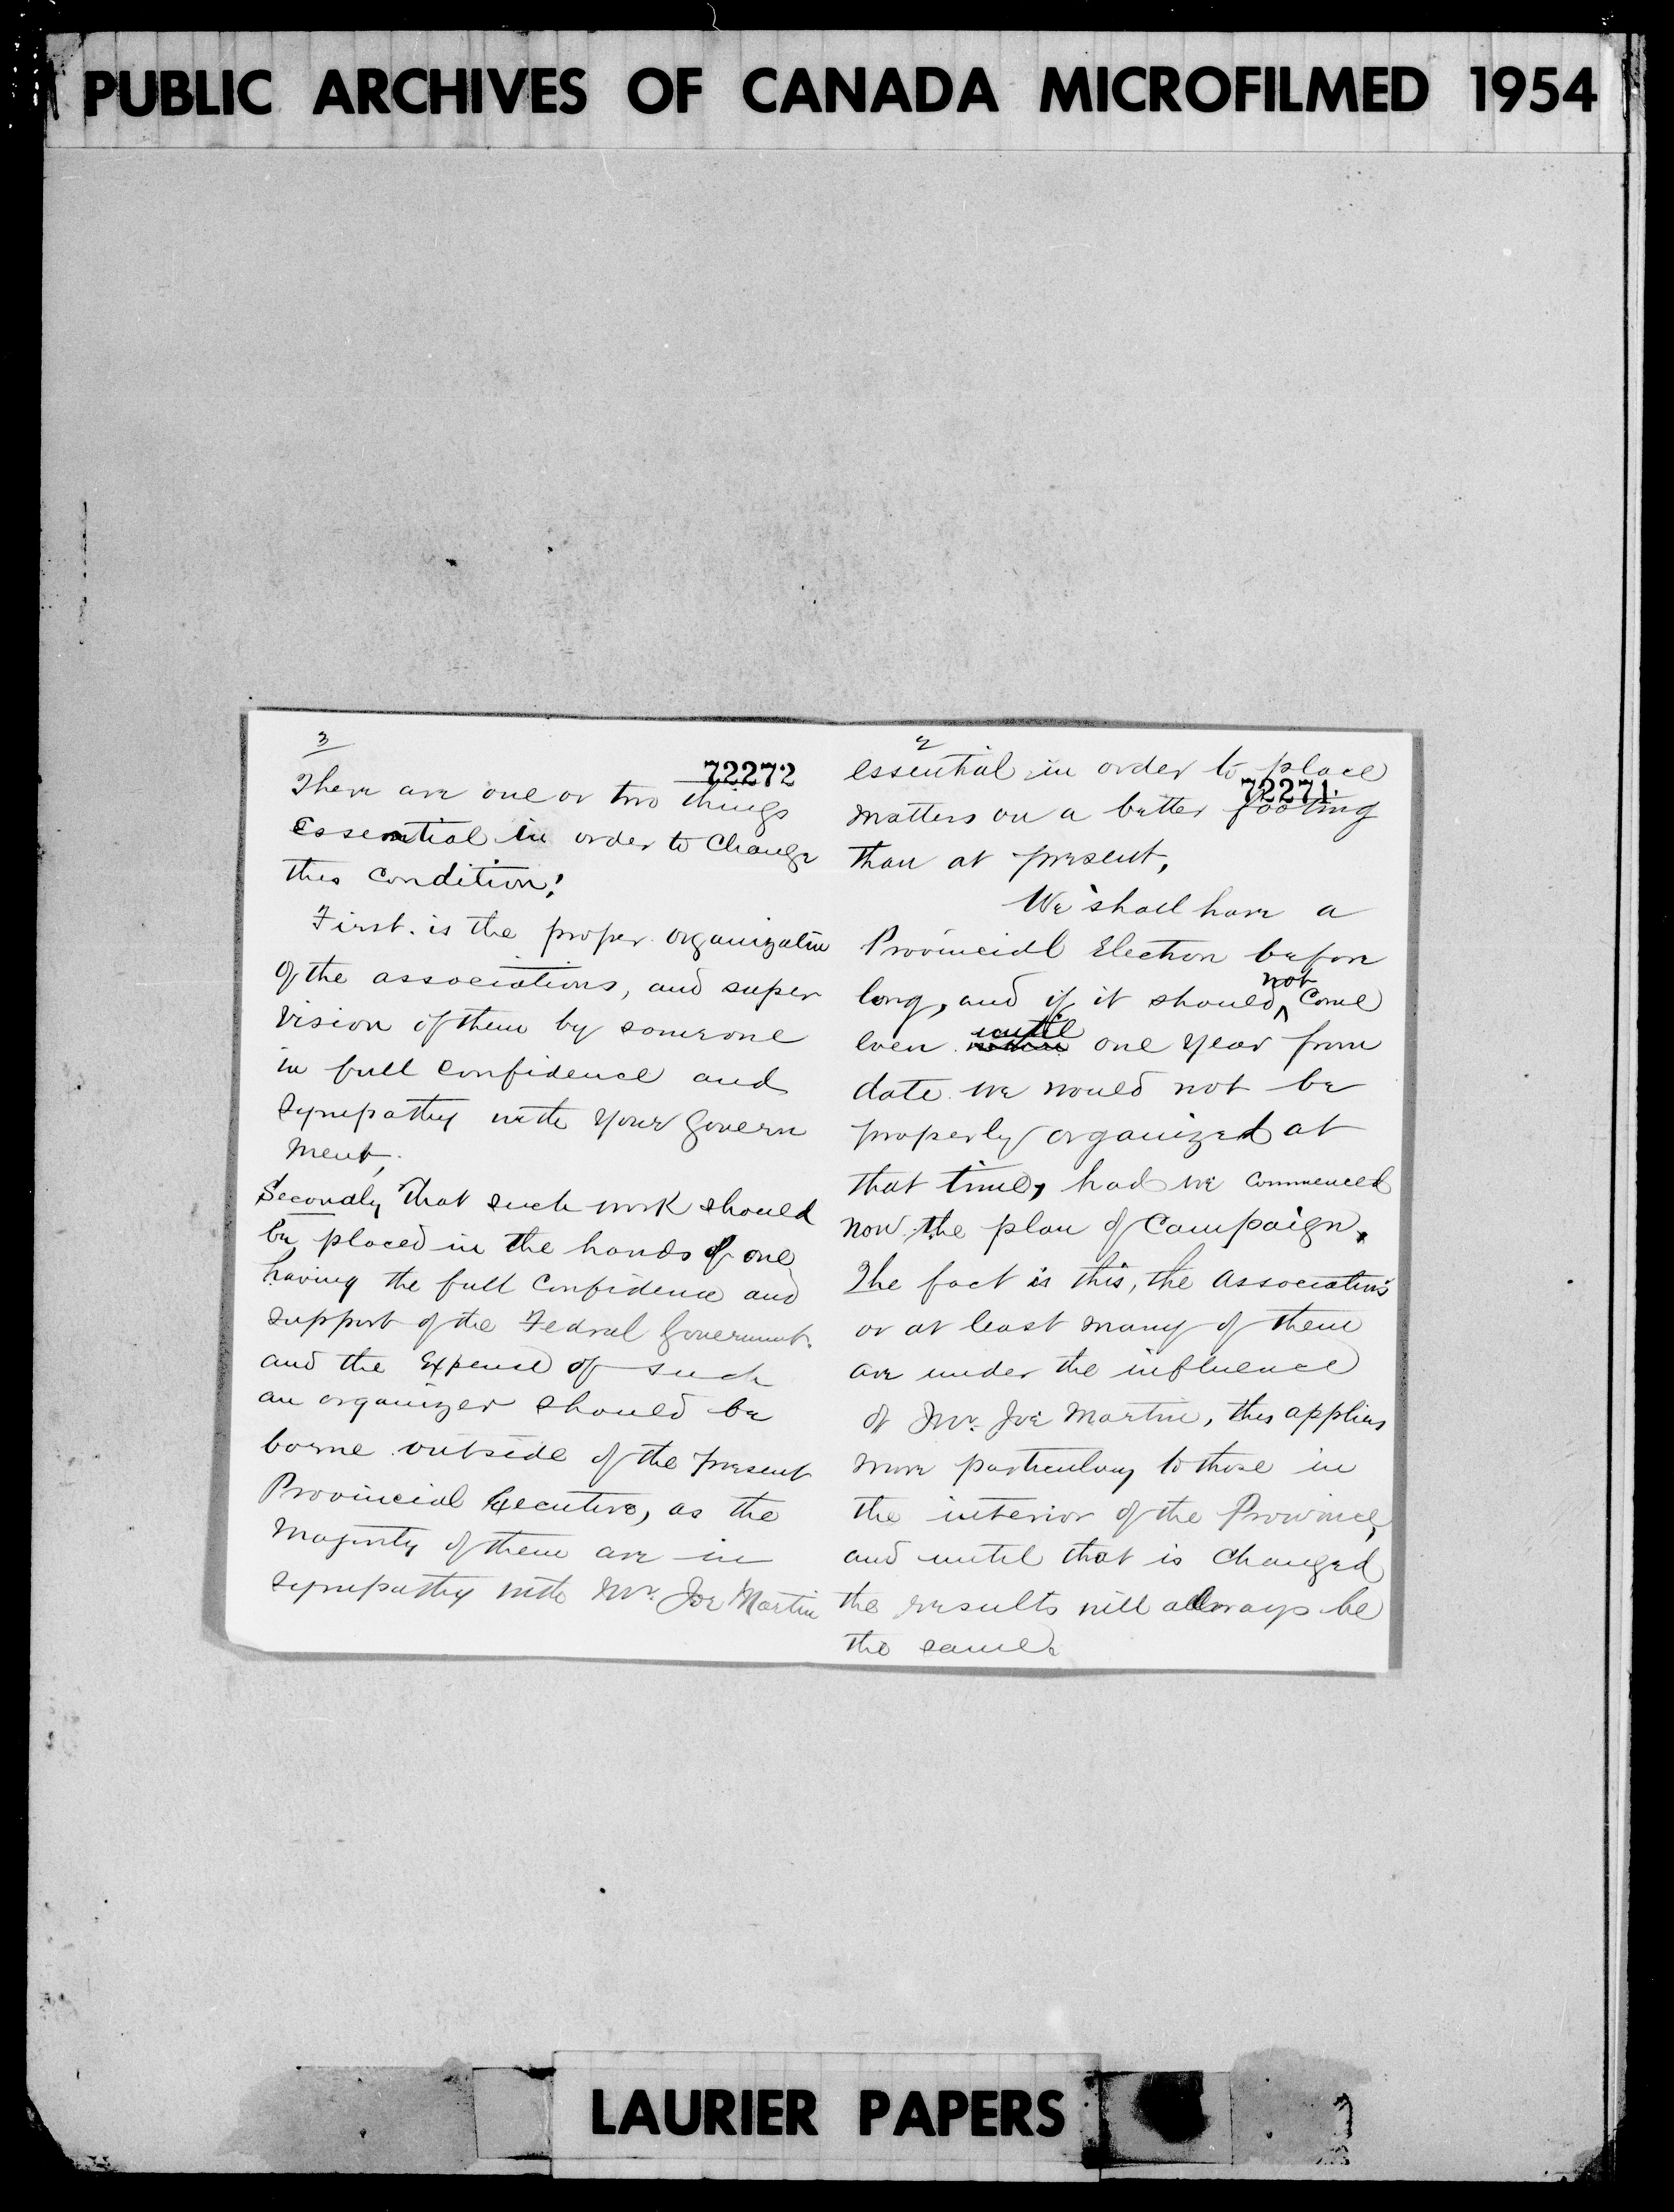 PUBLIC ARCHIVES OF CANADA MICROFILMED 1954
3
72272
There are one or two things
essential in order to Change
this Condition!
First. is the proper organization
of the associations, and super
vision of them by someone
in full Confidence and
sympathy with your Govern
ment,
Secondly that such work should
be placed in the hands of one
having the full Confidence and
support of the Federal Government.
and the Expense of such
an organizer should be
borne outside of the present
Provincial Executive, as the
Majority of them are in
sympathy with Mr. Joe Martin
2
essential in order to place
72271
matters on a better footing
than at present,
We shall have a
Provincial Election before
long, and if it should not Come
even until one year from
date we would not be
properly organized at
that time, had we commenced
now the plan of Campaign.
The fact is this, the Associations
or at least many of them
are under the influence
of Mr. Joe Martin, this applies
more particulary to those in
the interior of the Province,
and until that is Changed
the results will allways be
the same.
LAURIER PAPERS